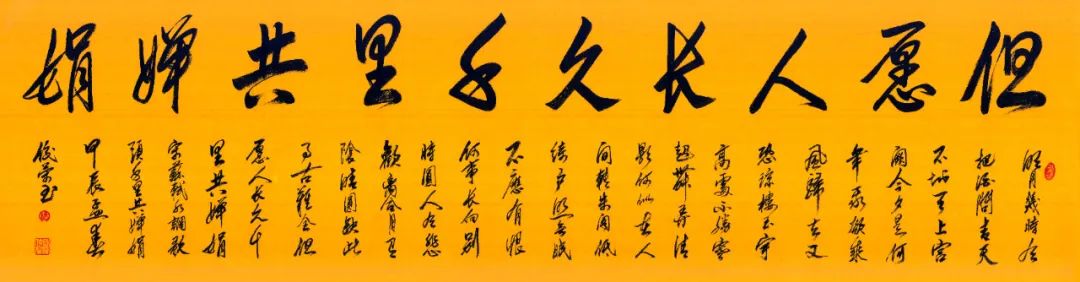 但愿人长久千里共婵娟
明月幾時有
把酒問青天
不知天上宫
闕今夕是何
年我欲乘
風歸去又
恐琼楼玉宇
高處不勝寒
起舞弄清
影何似在人
间转朱阁低
绮户照无眠
不應有恨
何事长向别
時圆人有悲
歡离合月有
陰晴圆缺此
事古難全但
愿人长久千
里共婵娟
宋蘇軾水调歌
頭千里共婵娟
甲辰孟春